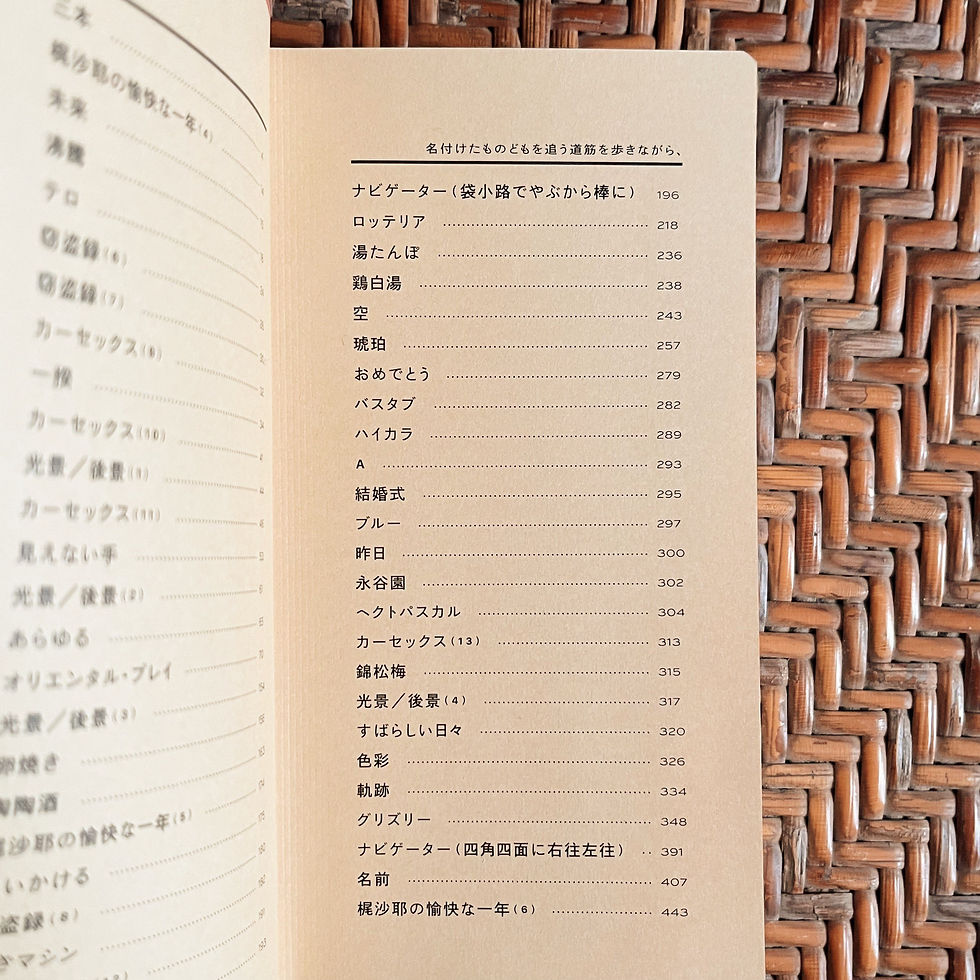 名付けたものどもを追う道筋を歩きながら、
ナビゲーター(袋小路でやぶから棒に) 196
ロッテリア 218
湯たんぽ 236
鶏白湯 238
空 243
琥珀 257
おめでとう 279
バスタブ 282
ハイカラ 289
A 293
結婚式 295
ブルー 297
昨日 300
永谷園 302
ヘクトパスカル 304
カーセックス(13) 313
錦松梅 315
光景/後景(4) 317
すばらしい日々 320
色彩 326
軌跡 334
グリズリー 348
ナビゲーター(四角四面に右往左往) 391
名前 407
梶沙耶の愉快な一年(6) 443
梶沙耶の愉快な一年(4)
未来
沸騰
テロ
窃盗録(6)
窃盗録(7)
カーセックス(9)
一揆
カーセックス(10)
光景/後景(1)
カーセックス(11)
見えない手
光景/後景(2)
あらゆる
オリエンタル・プレイ
光景/後景(3)
卵焼き
陶陶酒
沙耶の愉快な一年(5)
いかける
盗録(8)
マシン